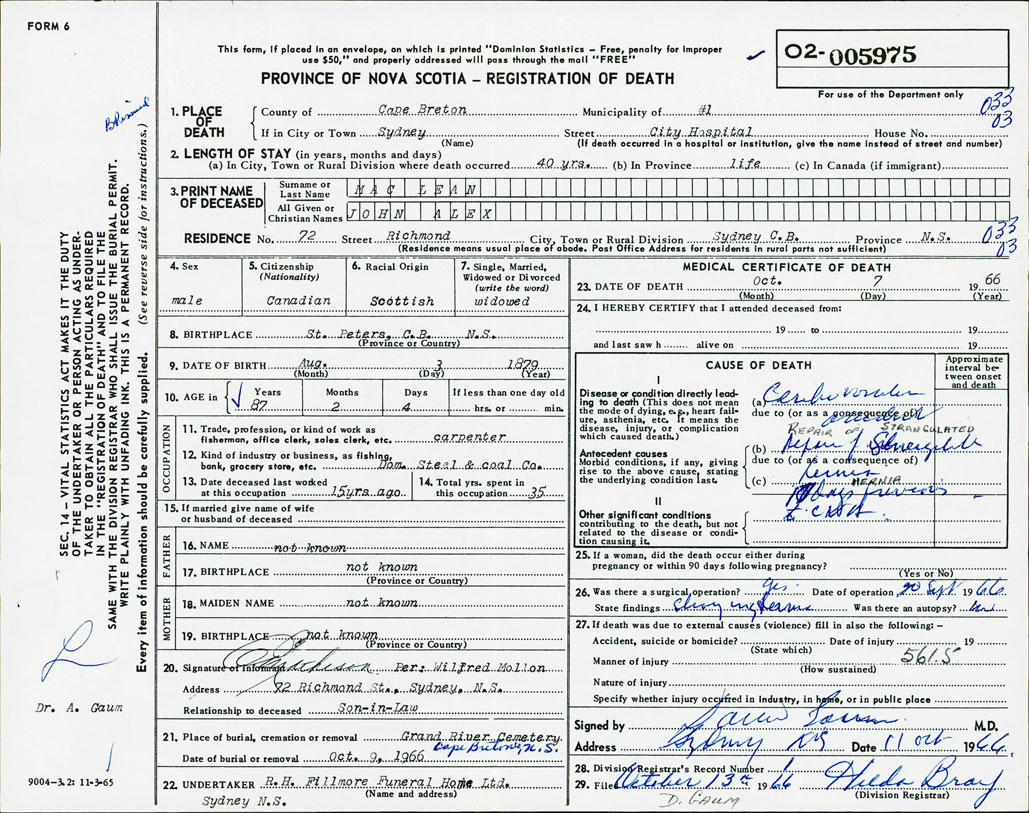 FORM 6
This form, if placed in an envelope, on which is printed "Dominion Statistics – Free, penalty for improper
use $50," and properly addressed will pass through the mail "FREE"
O2-005975
PROVINCE OF NOVA SCOTIA – REGISTRATION OF DEATH
For use of the Department only
033
03
1. PLACE OF DEATH
County of Cape Breton Municipality of #1
If in City or Town Sydney Street City Hospital House No.
(Name) (If death occurred in a hospital or institution, give the name instead of street and number)
2. LENGTH OF STAY (in years, months and days)
(a) In City, Town or Rural Division where death occurred 40 yrs. (b) In Province life (c) In Canada (if immigrant)
3. PRINT NAME OF DECEASED
Surname or Last Name MAC LEAN
All Given or Christian Names JOHN ALEX
RESIDENCE No. 72 Street Richmond City, Town or Rural Division Sydney C.B. Province N.S.
(Residence means usual place of abode. Post Office Address for residents in rural parts not sufficient)
033
03
4. Sex
male
5. Citizenship
(Nationality)
Canadian
6. Racial Origin
Scottish
7. Single, Married,
Widowed or Divorced
(write the word)
widowed
8. BIRTHPLACE St. Peters, C.B. N.S.
(Province or Country)
9. DATE OF BIRTH Aug. 3 1879
(Month) (Day) (Year)
10. AGE in Years Months Days If less than one day old
87 2 4 hrs. or min.
OCCUPATION
11. Trade, profession, or kind of work as
fisherman, office clerk, sales clerk, etc. carpenter
12. Kind of industry or business, as fishing,
bank, grocery store, etc. Dom. Steel & coal Co.
13. Date deceased last worked
at this occupation 15yrs.ago.
14. Total yrs. spent in
this occupation 35
15. If married give name of wife
or husband of deceased
FATHER
16. NAME not known
17. BIRTHPLACE not known
(Province or Country)
MOTHER
18. MAIDEN NAME not known
19. BIRTHPLACE not known
(Province or Country)
20. Signature of Informant Per: Wilfred Mollon
Address 72 Richmond St., Sydney, N.S.
Relationship to deceased Son-in-Law
21. Place of burial, cremation or removal Grand River Cemetery.
Cape Breton, N.S.
Date of burial or removal Oct. 9, 1966
22. UNDERTAKER R.H. Fillmore Funeral Home Ltd.
(Name and address)
Sydney N.S.
MEDICAL CERTIFICATE OF DEATH
23. DATE OF DEATH Oct. 7 1966
(Month) (Day) (Year)
24. I HEREBY CERTIFY that I attended deceased from:
19 to 19
and last saw h alive on 19
CAUSE OF DEATH
Approximate
interval be-
tween onset
and death
I
Disease or condition directly lead-
ing to death (This does not mean
the mode of dying, e.g., heart fail-
ure, asthenia, etc. It means the
disease, injury, or complication
which caused death.)
(a)
due to (or as a consequence of)
REPAIR OF STRANGULATED
Antecedent causes
Morbid conditions, if any, giving
rise to the above cause, stating
the underlying condition last.
(b) Repair of
due to (or as a consequence of)
(c) HERNIA
II
Other significant conditions
contributing to the death, but not
related to the disease or condi-
tion causing it.
25. If a woman, did the death occur either during
pregnancy or within 90 days following pregnancy?
(Yes or No)
26. Was there a surgical operation? yes Date of operation 20 Sept. 1966
State findings Was there an autopsy?
27. If death was due to external causes (violence) fill in also the following: –
Accident, suicide or homicide? Date of injury 19
(State which)
Manner of injury 561.5
(How sustained)
Nature of injury
Specify whether injury occurred in industry, in home, or in public place
Signed by M.D.
Address Sydney NS Date 11 Oct 1966
28. Division Registrar's Record Number
29. Filed October 13th 1966 Hilda Bray
(Division Registrar)
D. GAUM
SEC. 14 – VITAL STATISTICS ACT MAKES IT THE DUTY
OF THE UNDERTAKER OR PERSON ACTING AS UNDER-
TAKER TO OBTAIN ALL THE PARTICULARS REQUIRED
IN THE "REGISTRATION OF DEATH" AND TO FILE THE
SAME WITH THE DIVISION REGISTRAR WHO SHALL ISSUE THE BURIAL PERMIT.
WRITE PLAINLY WITH UNFADING INK. THIS IS A PERMANENT RECORD.
Every item of information should be carefully supplied. (See reverse side for instructions.)
Dr. A. Gaum
9004-3.2: 11-3-65